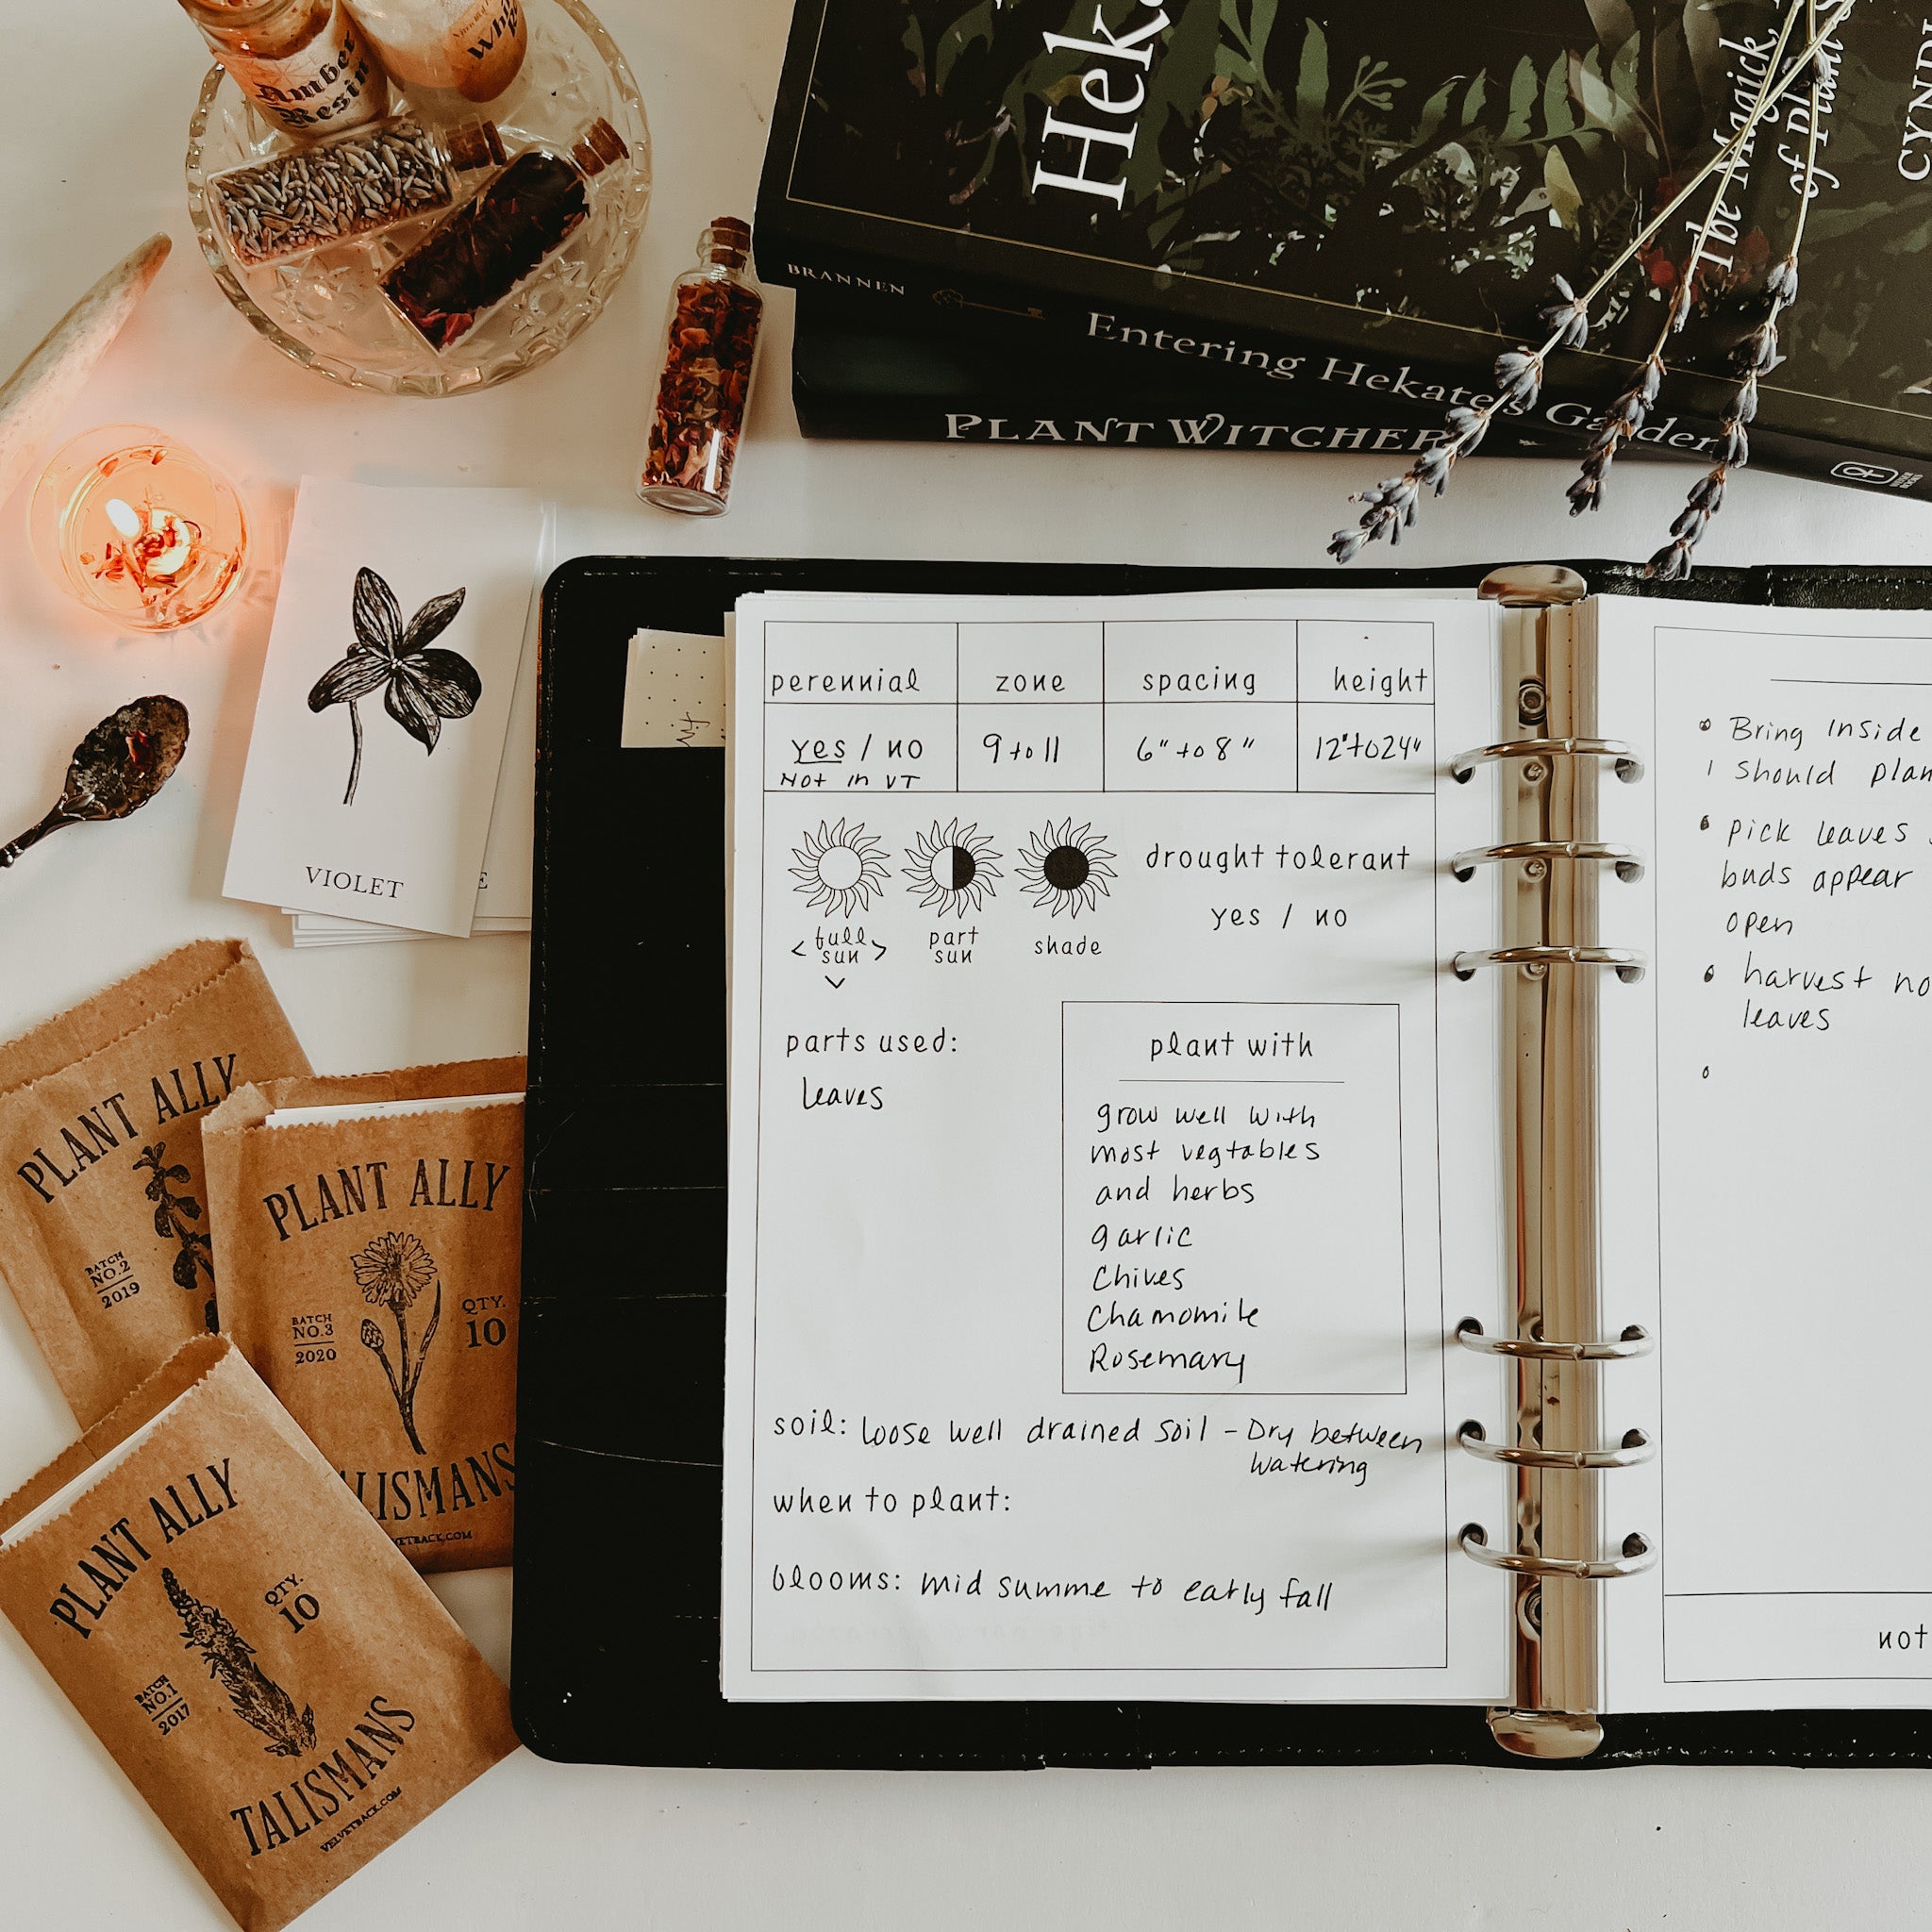 Amber
Resin
Whi
Hek
The Magick
of Plant S
CYND
BRANNEN
Entering Hekate's Garden
PLANT WITCHER
VIOLET
E
PLANT ALLY
BATCH
NO.2
2019
PLANT ALLY
BATCH
NO.3
2020
QTY.
10
LISMANS
VETBACK.COM
PLANT ALLY
QTY.
10
BATCH
NO.1
2017
TALISMANS
VELVETBACK.COM
perennial zone spacing height
yes / no 9 to 11 6" to 8" 12" to 24"
Not in VT
full
sun
part
sun
shade
drought tolerant
yes / no
parts used:
leaves
plant with
grow well with
most vegtables
and herbs
garlic
Chives
Chamomile
Rosemary
soil: loose well drained soil - Dry between
watering
when to plant:
blooms: mid summe to early fall
Bring inside
I should plan
pick leaves
buds appear
open
harvest no
leaves
not